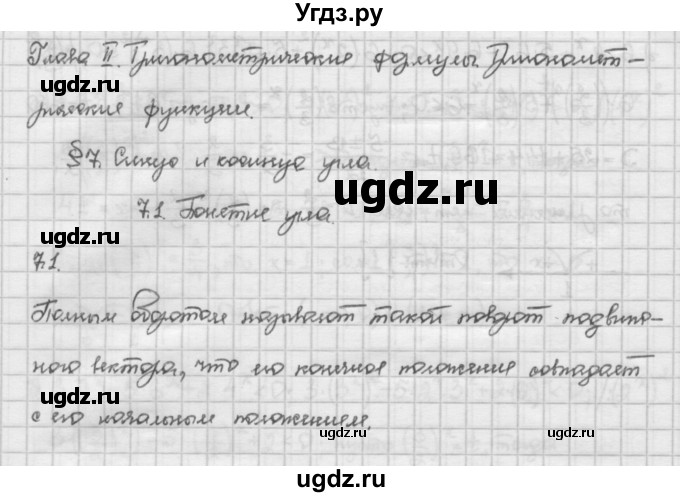 Угдз.ру
Глава II. Тригонометрические формулы. Тригономет-
рические функции.
ugdz.ru
§ 7. Синус и косинус угла.
ugdz.ru
7.1. Понятие угла.
ugdz.ru
7.1.
Полным оборотом называют такой поворот подвиж-
ного вектора, что его конечное положение совпадает
с его начальным положением.
ugdz.ru
ugdz.ru
ugdz.ru